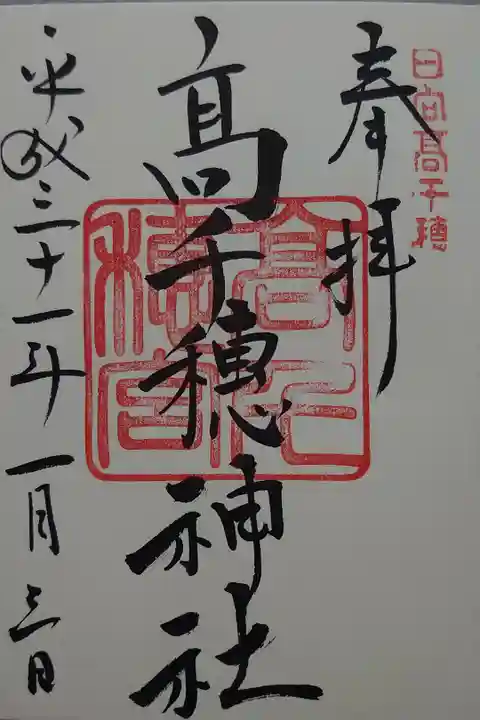 日向高千穂
奉拝
髙千穂神社
平成三十一年一月三日